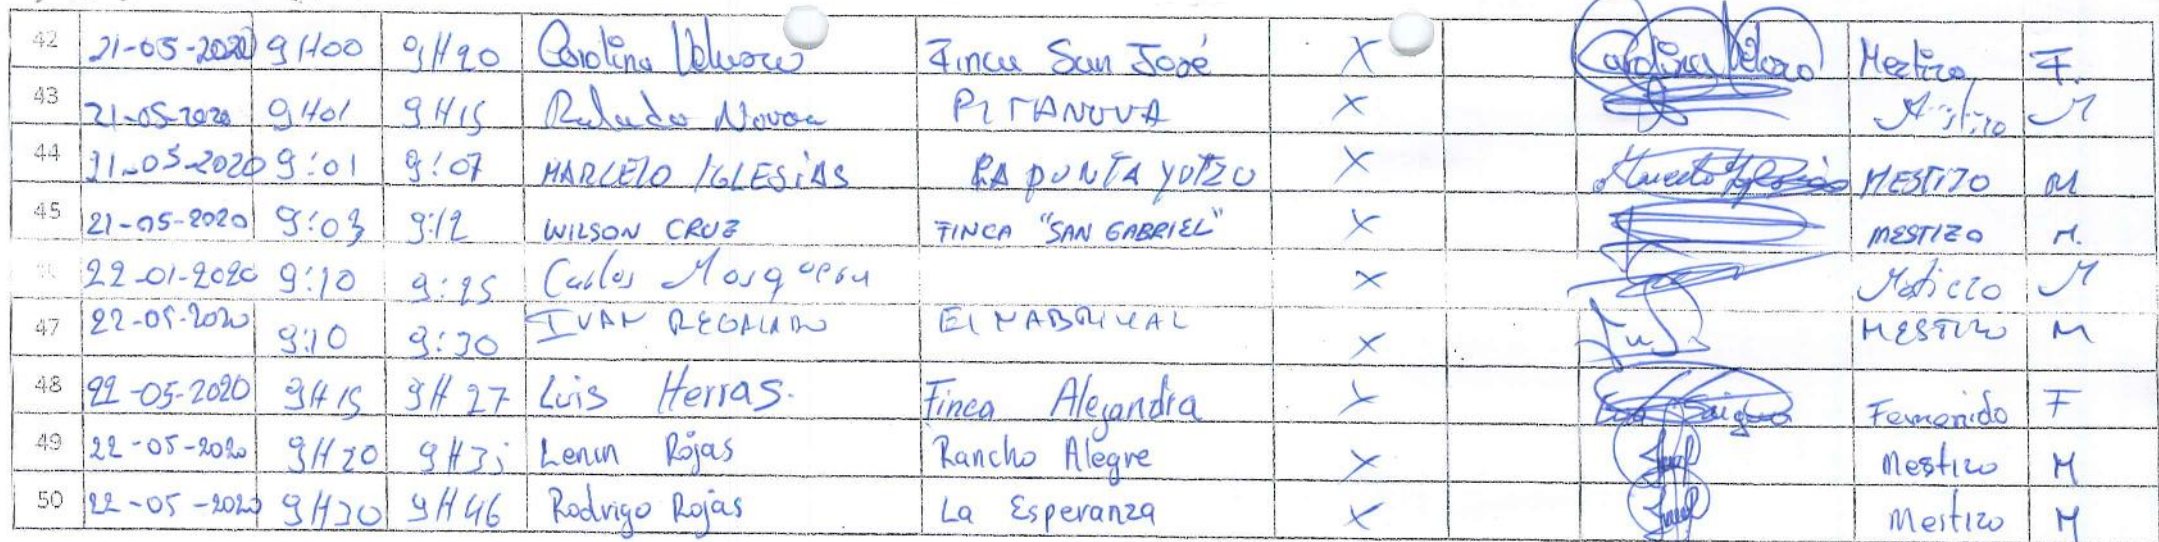 42 21-05-2020 9H00 9H20 Carolina Velasco Finca San José X Carolina Velasco Mestizo F.
43 21-05-2020 9H01 9H15 Novoa PITANOVA X M
44 21-05-2020 9:01 9:07 MARCELO IGLESIAS PUNTA YUTZO X MESTIZO M
45 21-05-2020 9:03 9:12 WILSON CRUZ FINCA "SAN GABRIEL" X MESTIZO M.
22-01-2020 9:10 9:25 Carlos X M
47 22-05-2020 9:10 9:30 IVAN REGALADO X MESTIZO M
48 22-05-2020 9H15 9H27 Luis Herras. Finca Alejandra X Femenido F
49 22-05-2020 9H20 Lenin Rojas Rancho Alegre X Mestizo M
50 22-05-2020 9H30 9H46 Rodrigo Rojas La Esperanza X Mestizo M